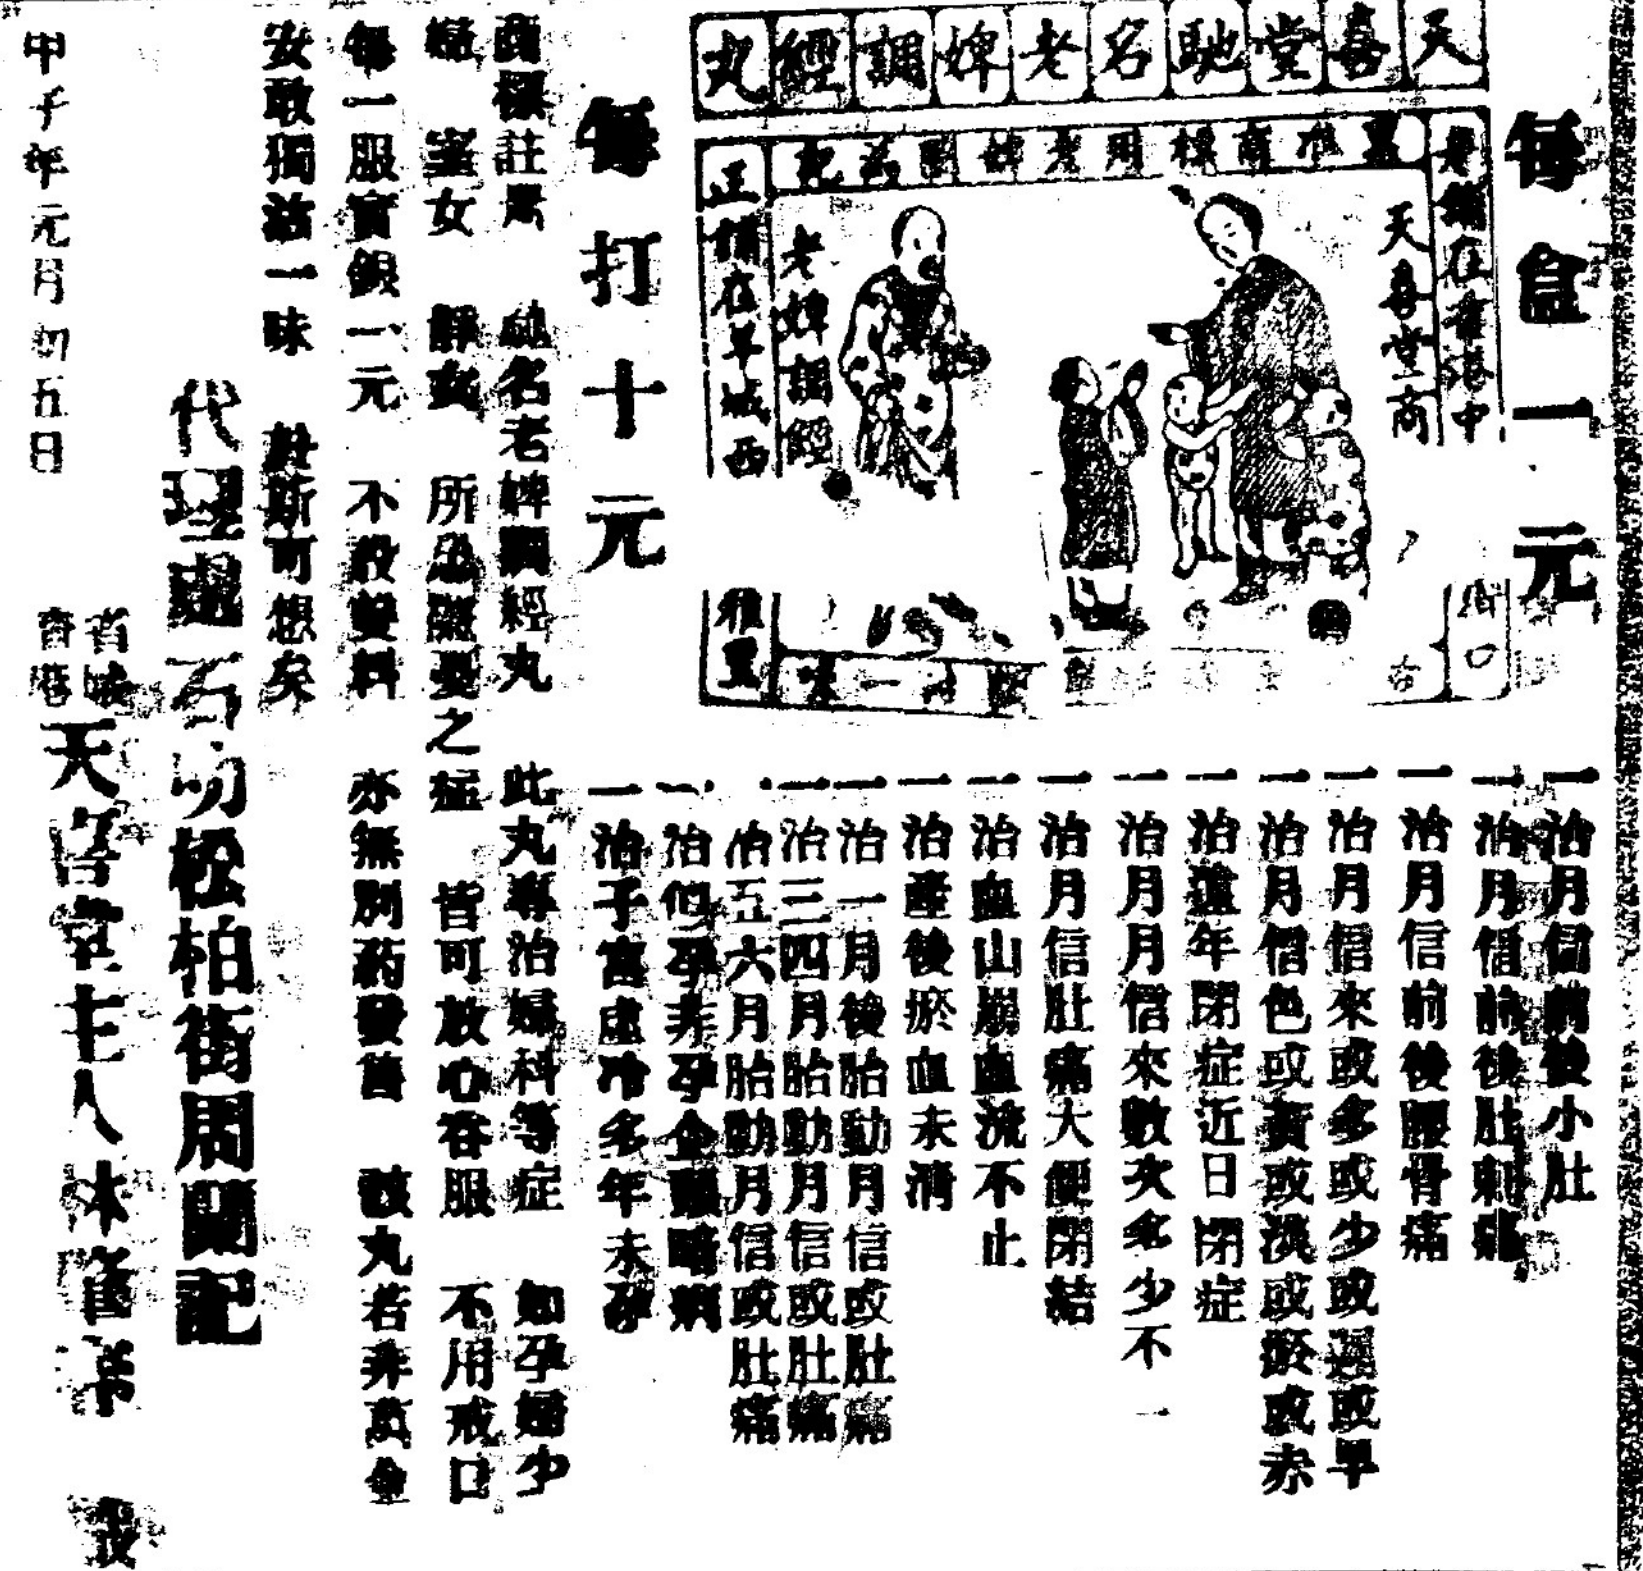 每盒一元
天喜堂馳名老婢調經丸
天喜堂商
老婢調經
正舖在羊城西
雅里
每打十元
一治月信前後小肚
一治月信前後肚刺痛
一治月信前後腰骨痛
一治月信來或多或少或遲或早
一治月信色或黃或淡或瘀或赤
一治遠年閉症近日閉症
一治月月信來數次多少不一
一治月信肚痛大便閉結
一治血山崩血流不止
一治產後瘀血未清
一治一月後胎動月信或肚痛
一治三四月胎動月信或肚痛
治五六月胎動月信或肚痛
一治似孕非孕企頭暗病
一治子宮虛冷多年未孕
商標註冊 馳名老婢調經丸 此丸專治婦科等症 如孕婦少
婦 室女 靜女 所患難憂之症 皆可放心吞服 不用戒口
每一服實銀一元 不設雙料 亦無別葯發售 該丸若非萬金
安敢獨沽一味 於斯可想矣
代理處 石叻松柏街周蘭記
甲子年元月初五日
省城
香港
天喜堂主人林